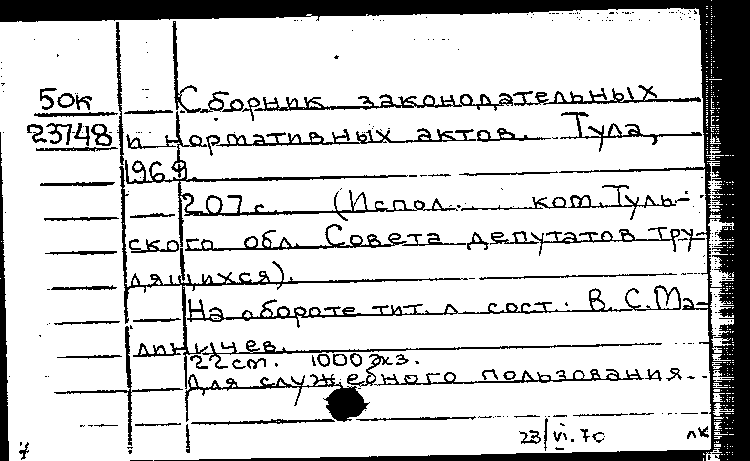 50к Сборник законодательных
23748 и нормативных актов. Тула,
1969.
207 с. (Испол. ком. Туль-
ского обл. Совета депутатов тру-
дящихся).
На обороте тит. л. сост. В. С. Ма-
линычев.
22 см. 1000 экз.
Для служебного пользования.
23/VI.70 лк